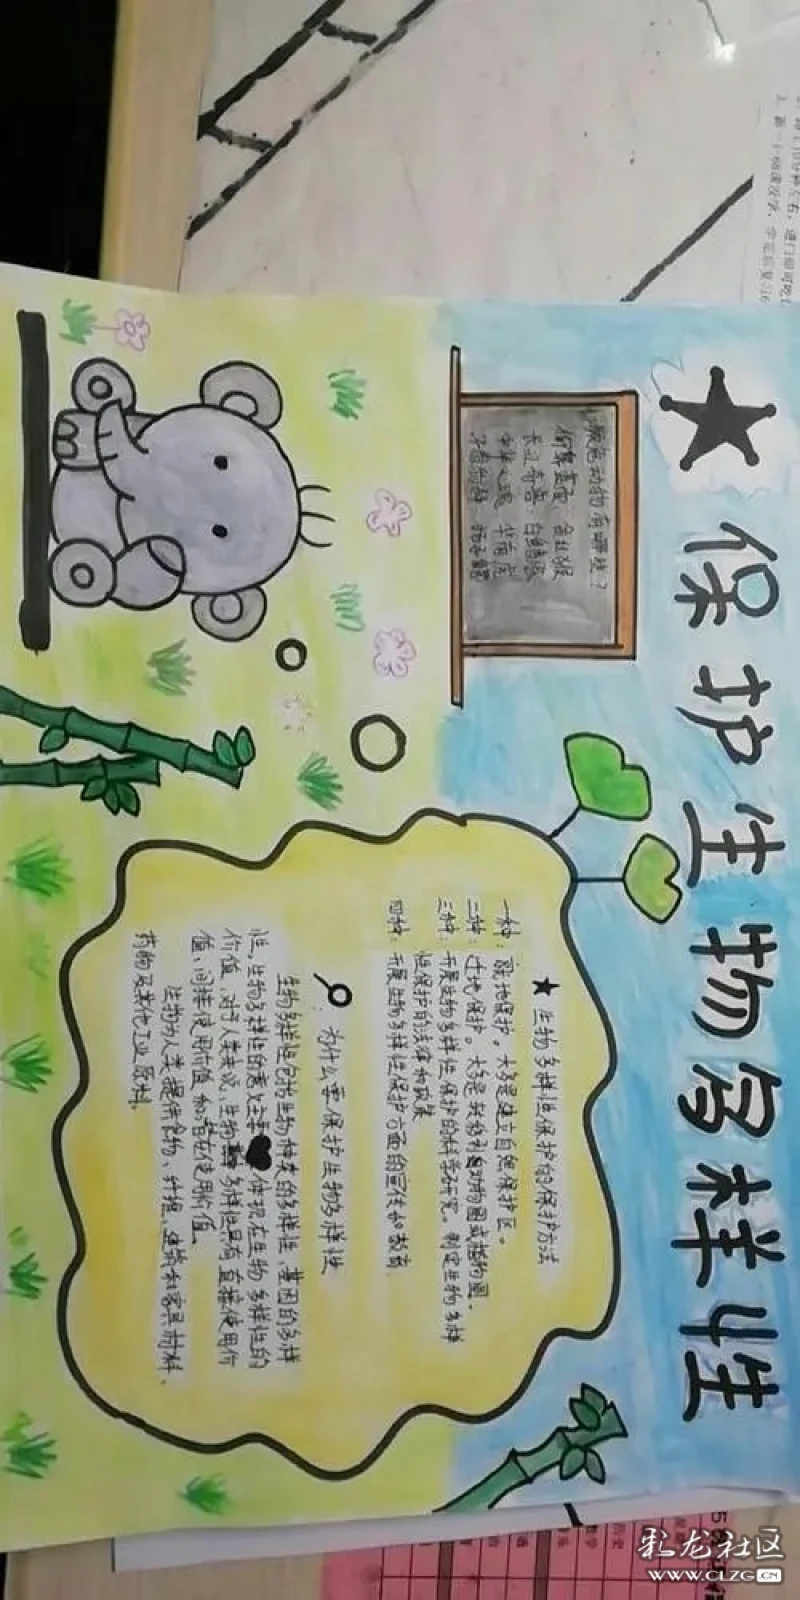 保护生物多样性
濒危动物有哪些?
何氏
金丝猴
长江
白鳍豚
华南虎
扬子鳄
★ 生物多样性保护的保护方法
一种:就地保护。大多是建立自然保护区。
二种:迁地保护。大多是转移到动物园或植物园。
三种:开展生物多样性保护的科学研究。制定生物多样
性保护的法律和政策
四种:开展生物多样性保护方面的宣传和教育
为什么要保护生物多样性
生物多样性包括生物种类的多样性,基因的多样
性,生物多样性的意义主要体现在生物多样性的
价值,对于人类来说,生物多样性具有直接使用价
值,间接使用价值和潜在使用价值。
生物为人类提供食物、纤维、建筑和家具材料、
药物及其他工业原料。
彩龙社区
WWW.CLZG.CN